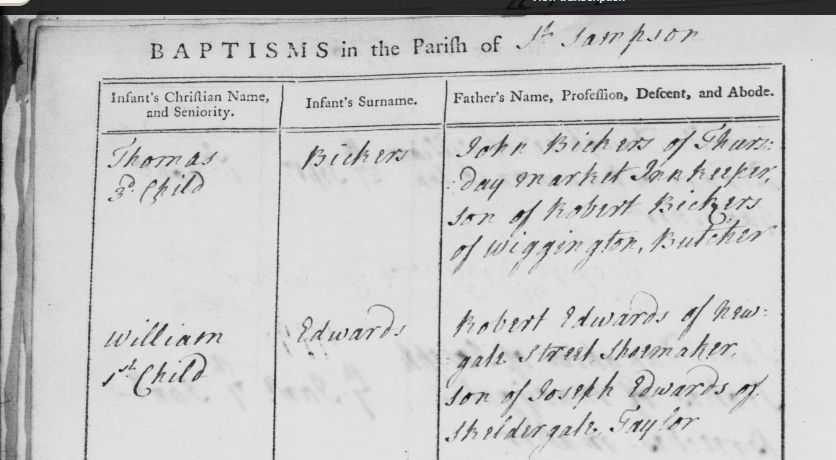 BAPTISMS in the Pariſh of St Sampson
Infant's Chriſtian Name,
and Seniority.
Infant's Surname.
Father's Name, Profeſſion, Deſcent, and Abode.
Thomas
3d. Child
Bickers
John Bickers of Thurs:
:day market Innkeeper,
son of Robert Bickers
of Wiggington, Butcher
William
1st Child
Edwards
Robert Edwards of New:
:gate Street Shoemaker,
son of Joseph Edwards of
Skeldergate. Taylor